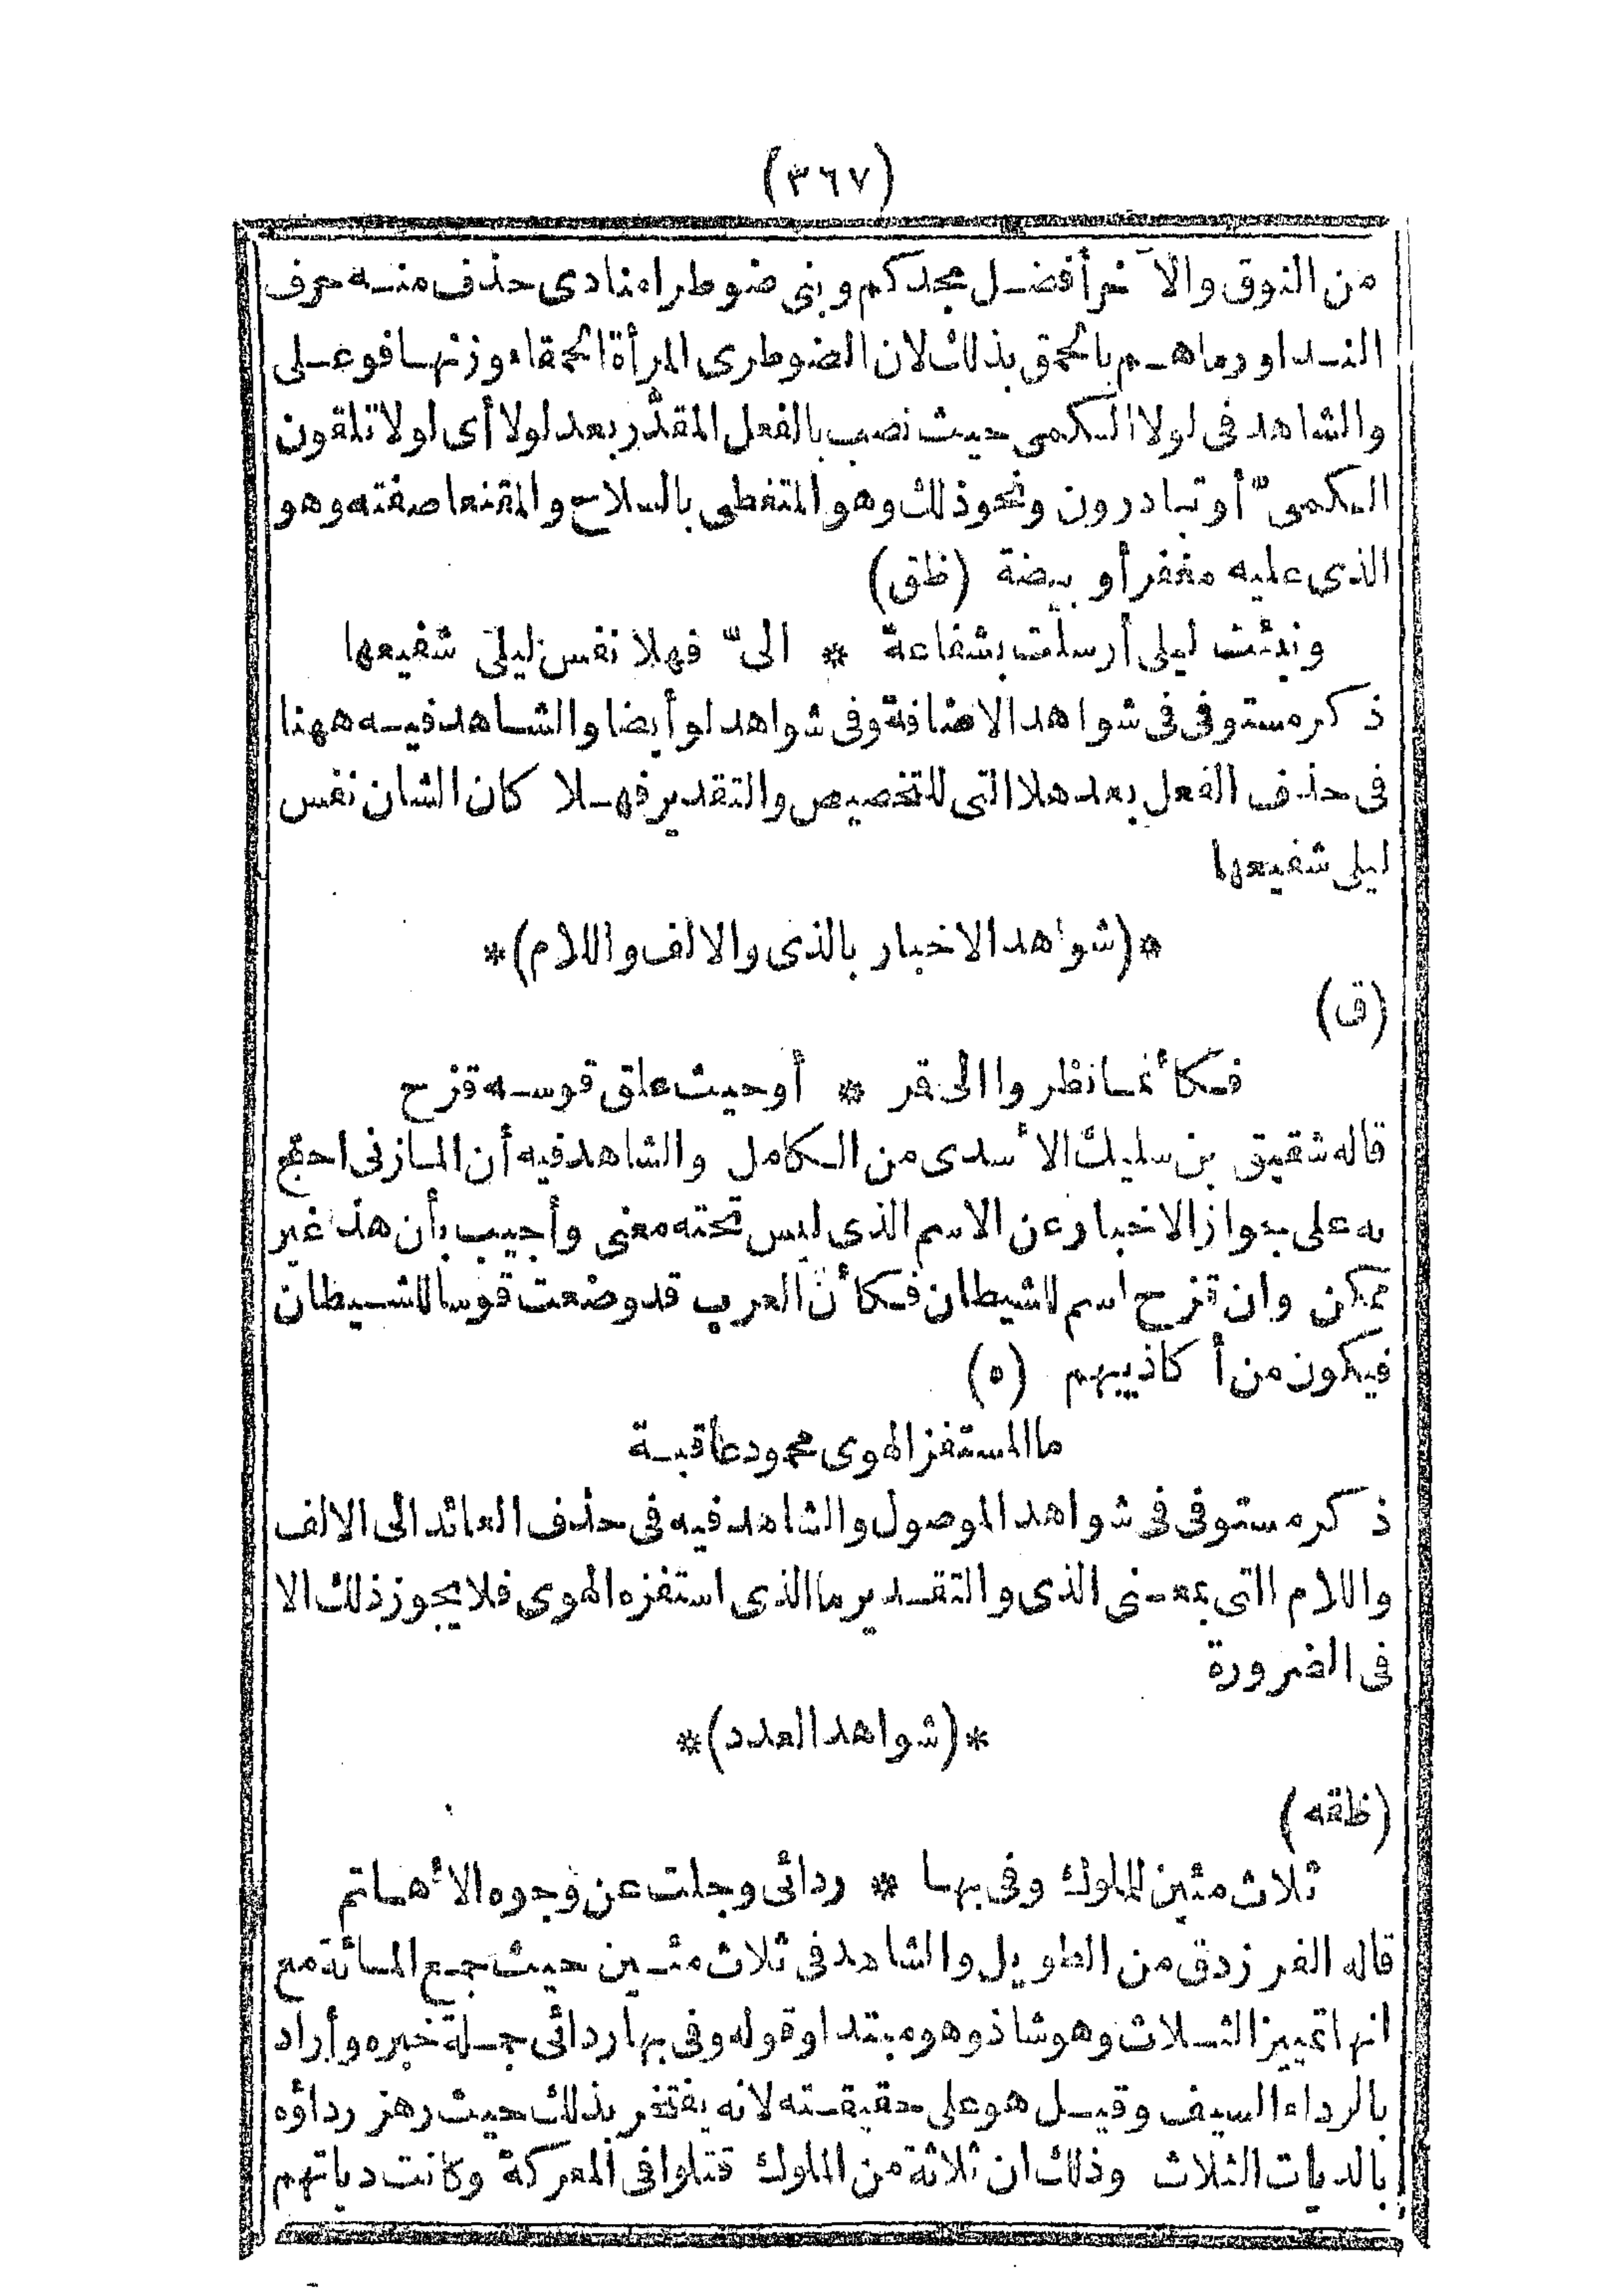 (٣٦٧)
من النوق والآخر أفضل مجدكم وبنى ضوطرا منادى حذف منه حرف
النداو رماهم بالحمق بذلك لان الضوطرى المرأة الحمقاء وزنها فوعلى
والشاهد فى لولا الكمى حيث نصب بالفعل المقدّر بعد لولا أى لولا تلقون
الكمىّ أو تبادرون ونحو ذلك وهو المتغطى بالسلاح والمقنعا صفته وهو
الذى عليه مغفر أو بيضة (ظق)
ونبئت ليلى أرسلت بشفاعة * الىّ فهلا نفس ليلى شفيعها
ذكر مستوفى فى شواهد الاضافة وفى شواهد لو أيضا والشاهد فيه ههنا
فى حذف الفعل بعد هلا التى للتخصيص والتقدير فهلا كان الشان نفس
ليلى شفيعها
*(شواهد الاخبار بالذى والالف واللام)*
(ق)
فكأنما نظروا الى قر * أو حيث علق قوسه قزح
قاله شقيق بن سليك الأسدى من الكامل والشاهد فيه أن المازنى احتج
به على جواز الاخبار عن الاسم الذى ليس تحته معنى وأجيب بأن هذ غير
ممكن وان قزح اسم للشيطان فكأنّ العرب قد وضعت قوسا للشيطان
فيكون من أكاذيبهم (ه)
ما المستفز الهوى محمود عاقبة
ذكر مستوفى فى شواهد الموصول والشاهد فيه فى حذف العائد الى الالف
واللام التى بمعنى الذى والتقدير ما الذى استفزه الهوى فلا يجوز ذلك الا
فى الضرورة
*(شواهد العدد)*
(ظقه)
ثلاث مئين للملوك وفى بها * ردائى وجلت عن وجوه الأهاتم
قاله الفرزدق من الطويل والشاهد فى ثلاث مئين حيث جمع المائة مع
انها تمييز الثلاث وهو شاذ وهو مبتدا وقوله وفى بها ردائى جملة خبره وأراد
بالرداء السيف وقيل هو على حقيقته لانه يفتخر بذلك حيث رهز رداؤه
بالديات الثلاث وذلك ان ثلاثة من الملوك قتلوا فى المعركة وكانت دياتهم